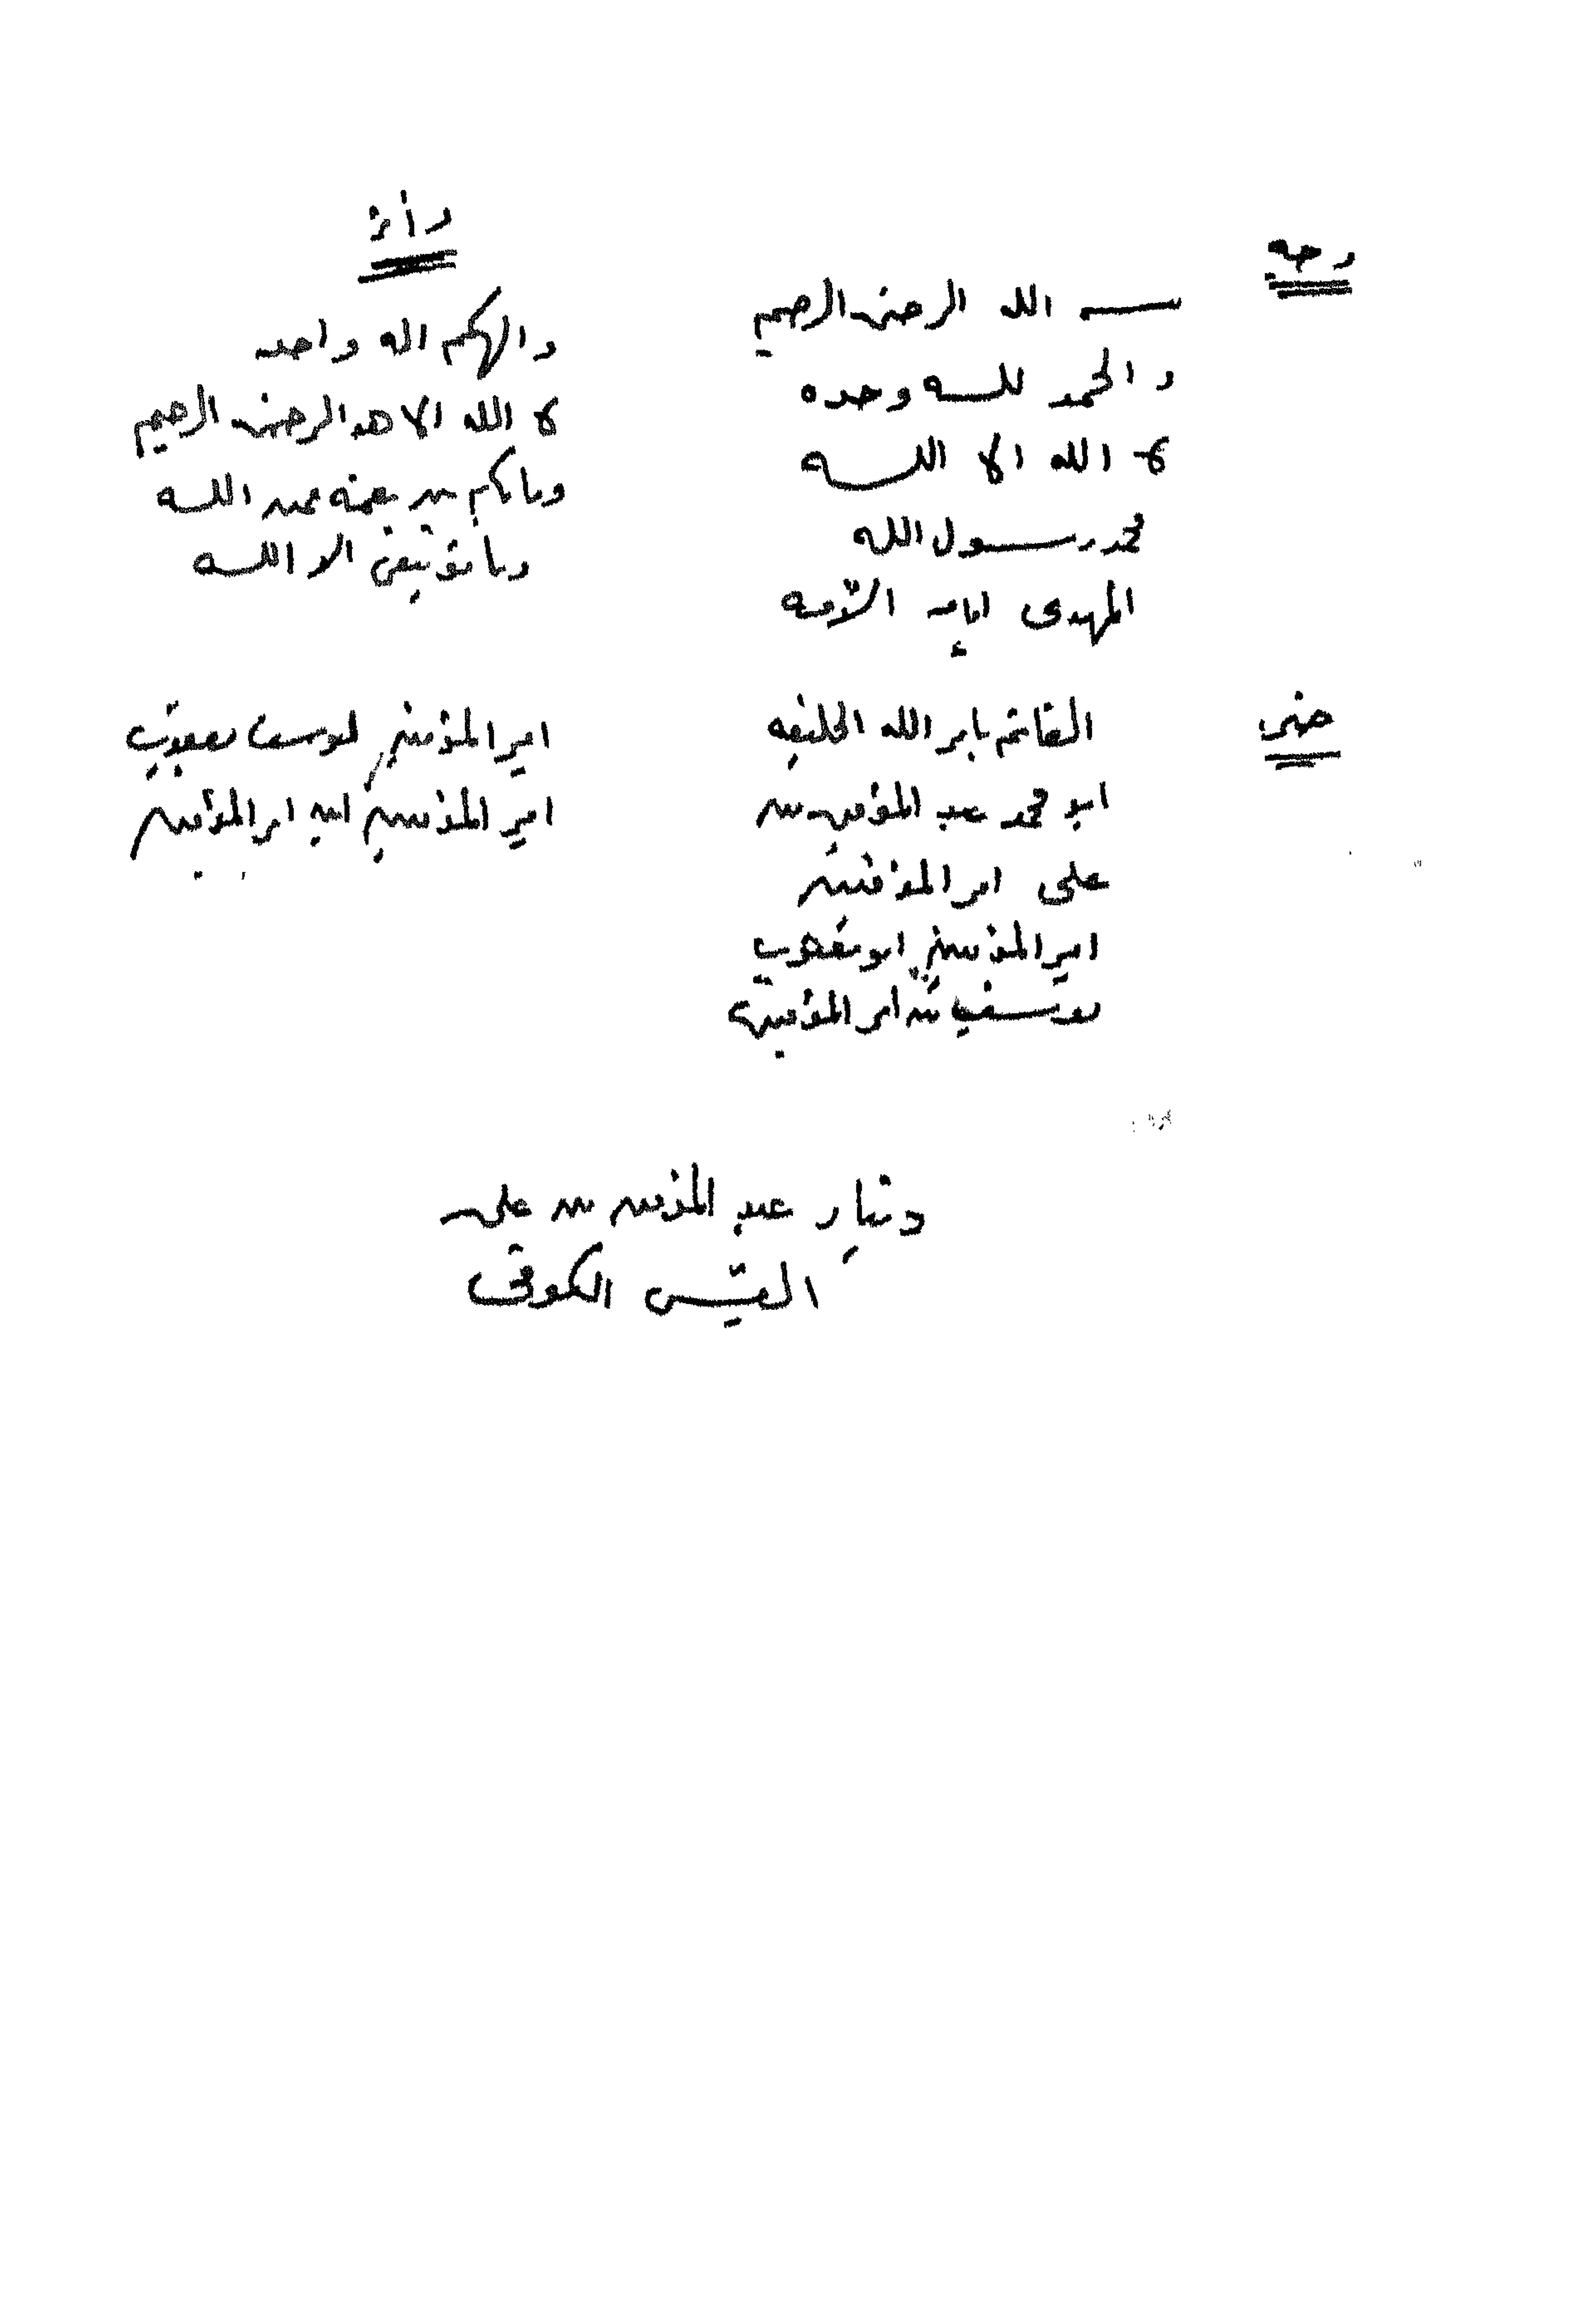 وجه
بسم الله الرحمن الرحيم
والحمد لله وحده
لا الله الا الله
محمد رسول الله
المهدى امام الامه
القائم بامر الله الخليفه
ابو محمد عبد المؤمن بن
على امير المؤمنين
امير المؤمنين ابو يعقوب
يوسف بن امير المؤمنين
والهكم اله واحد
لا الله الا هو الرحمن الرحيم
وما بكم من نعمة فمن الله
وما توفيقى الا الله
امير المؤمنين يعقوب
امير المؤمنين ابن امير المؤمنين
دينار عبد المؤمن بن على
القيسى الكوفى